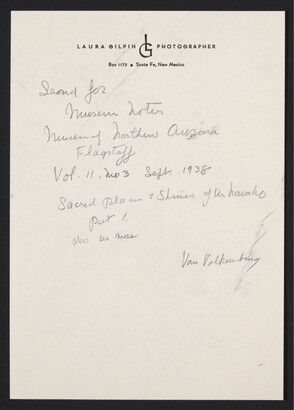 LAURA GILPIN LG PHOTOGRAPHER
Box 1173 • Santa Fe, New Mexico
Send for
Museum Notes
Museum of Northern Arizona
Flagstaff
Vol. 11, no 3 Sept. 1938
Sacred places & Shrines of the Navaho
part 1.
also see more
Van Valkenburg